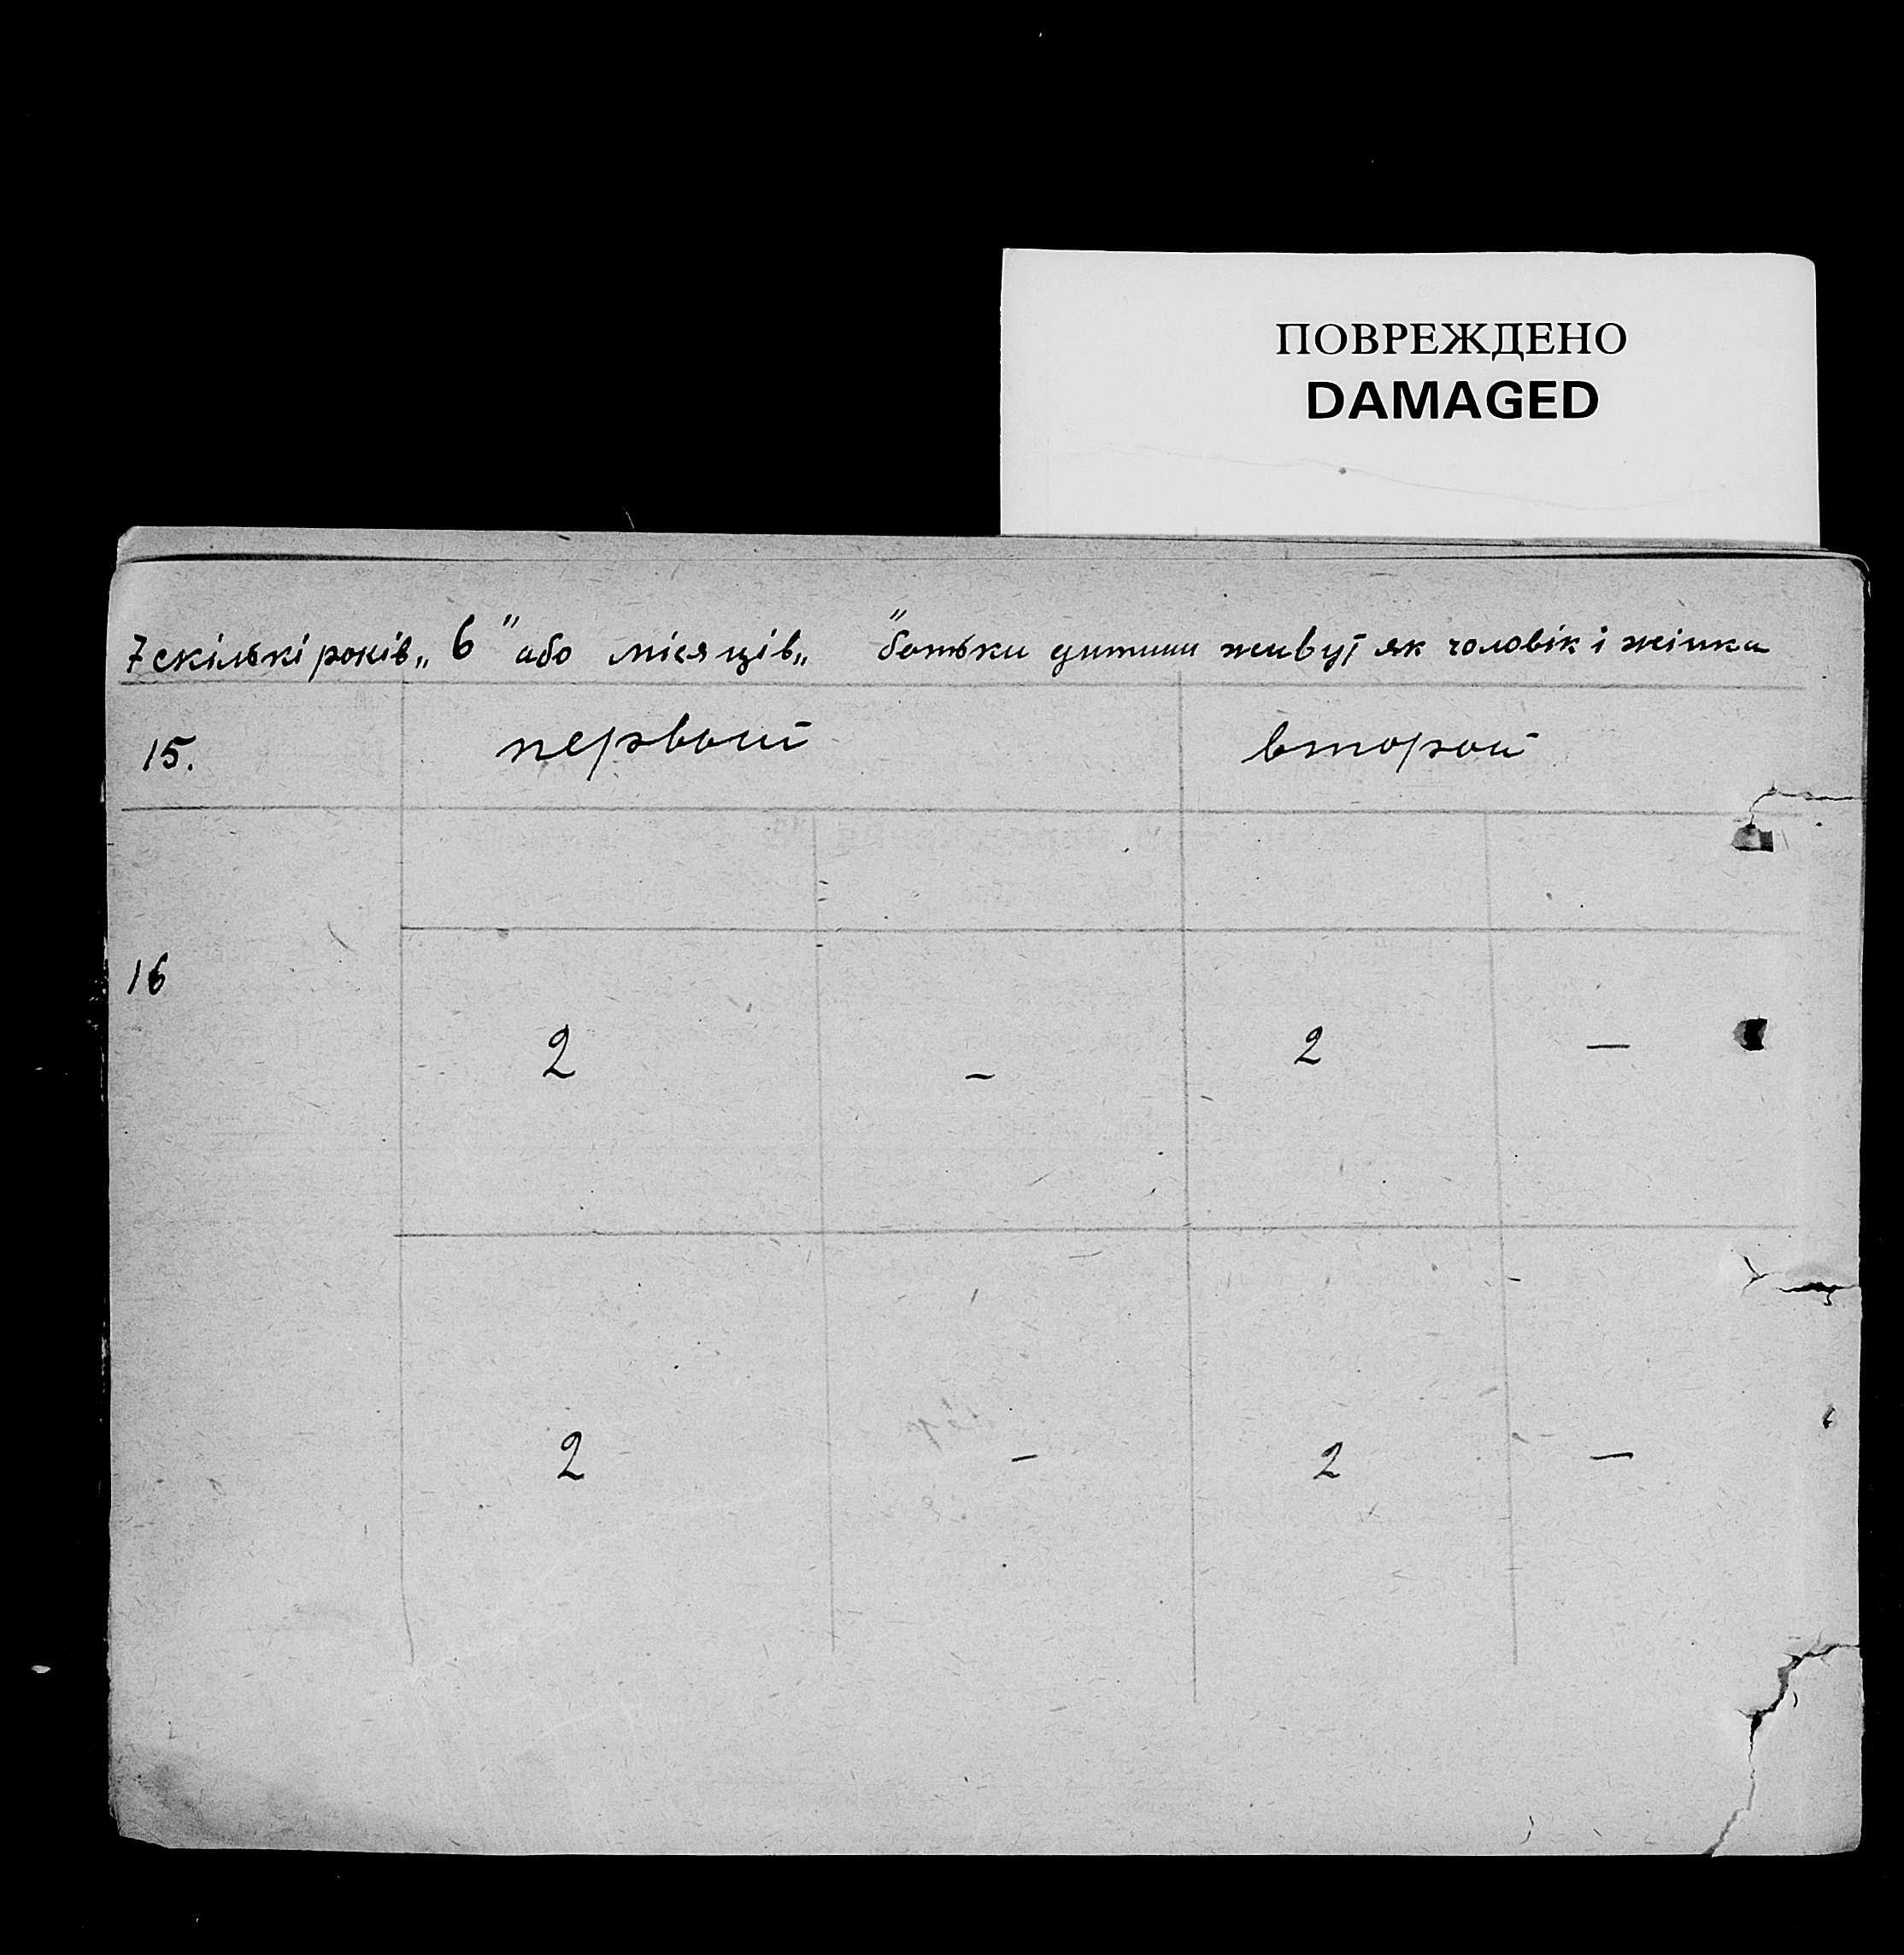 ПОВРЕЖДЕНО
DAMAGED
7 скількі років „ 6 " або місяців „ " батьки дитини живуть як чоловік і жінка
15. первый второй
16
2 – 2 –
2 – 2 –